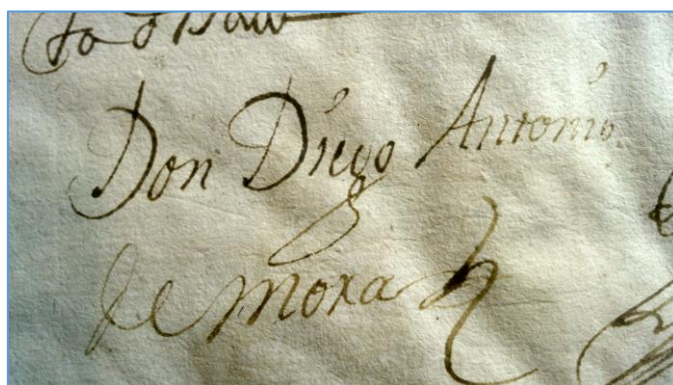 Don Diego Antonio
de Mora